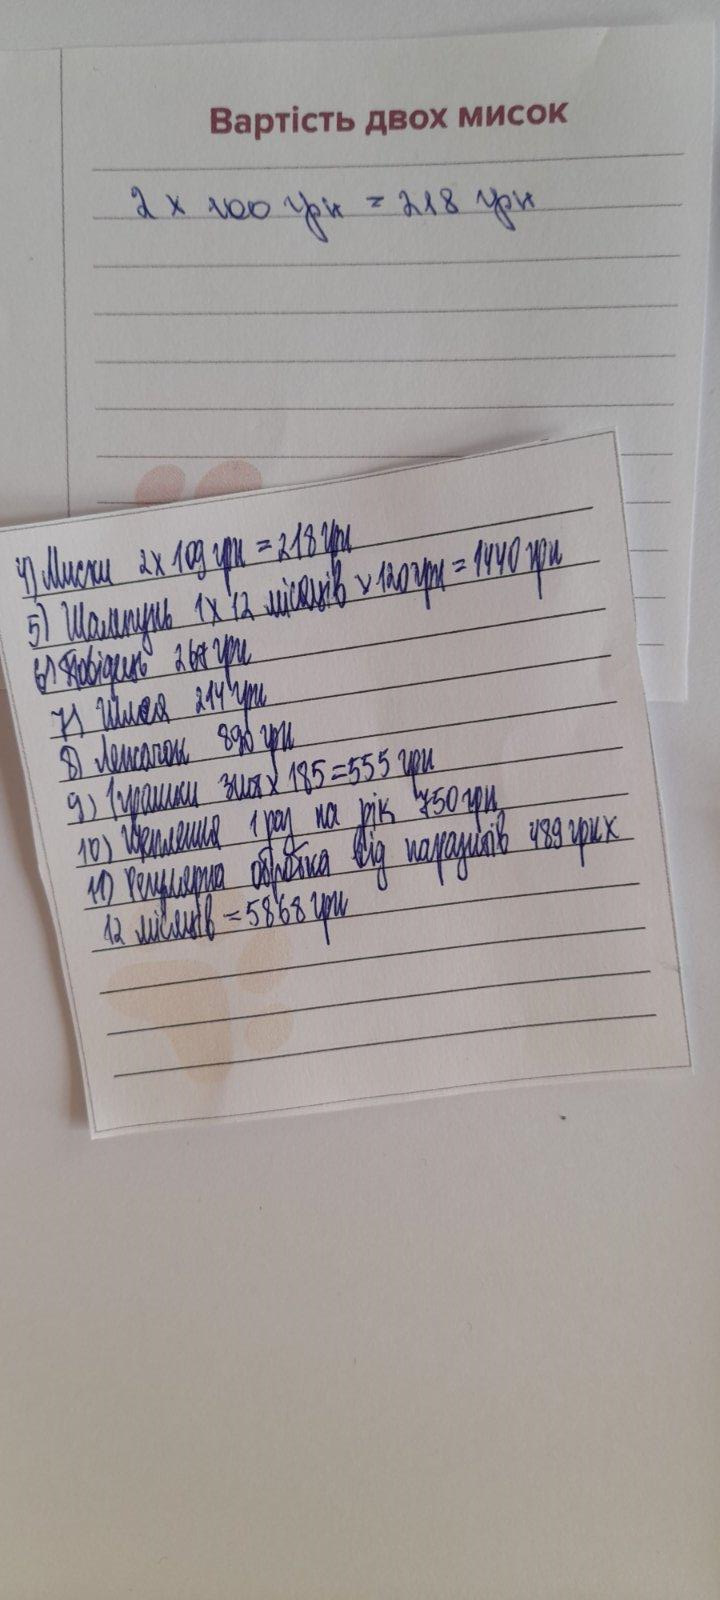 Вартість двох мисок
2 x 100 грн = 218 грн
4) Миски 2 x 109 грн = 218 грн
5) Шампунь 1 x 12 місяців x 120 грн = 1440 грн
6) Повідець 267 грн
7) Шлея 214 грн
8) Лежачок 890 грн
9) Іграшки 3 x 185 = 555 грн
10) Щеплення 1 раз на рік 750 грн
11) Регулярна обробка від паразитів 489 грн x
12 місяців = 5868 грн